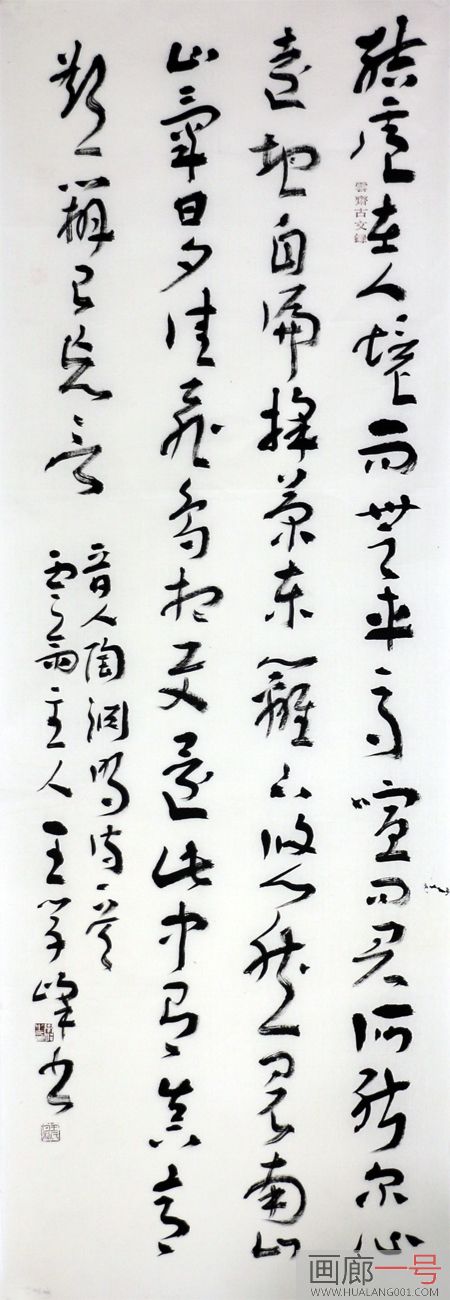 結廬在人境而無車馬喧問君何能尔心
遠地自偏採菊東籬下悠然見南山
山氣日夕佳飛鳥相與還此中有真意
欲辨已忘言
晉人陶淵明詩一首
雲齋主人王學峰書
雲齋古文録
画廊一号
WWW.HUALANG001.COM